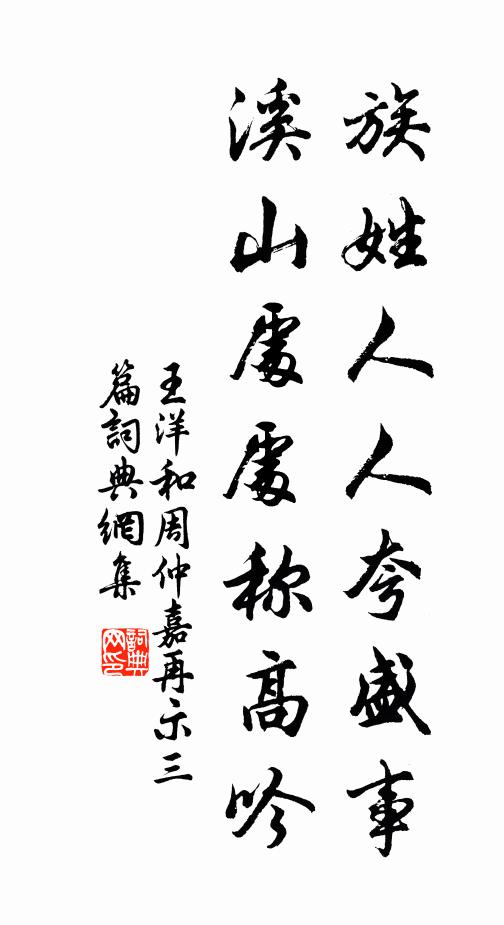 族姓人人夸盛事
溪山處處称高吟
王洋和周仲嘉再示三
篇詞典網集
詞典
网印